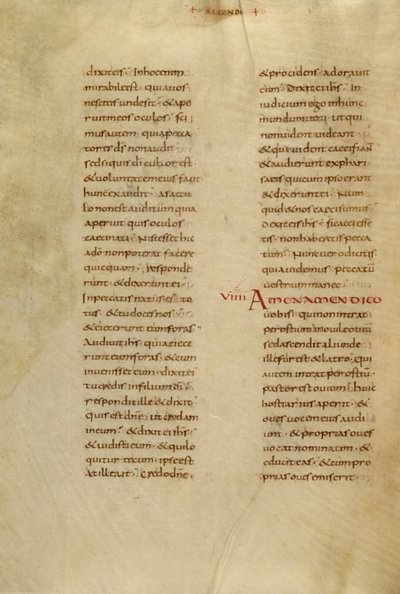 + SECUND +
dixiteis · Inhocenim
mirabile est quia uos
nescitis unde sit · & ape
ruit meos oculos · sci
mus autem quia pecca
tores d̄s non audit
sed si quis d̄i cultor est
& uoluntatem eius facit
hunc exaudit · a saecu
lo non est auditum quia
aperuit quis oculos
caeci nati · Nisi esset hic
a d̄o non poterat facere
quicquam · responde
runt · & dixerunt ei ·
In peccatis natus es to
tus · & tu doces nos ·
& eiecerunt eum foras
Audiuit ih̄s quia eiece
runt eum foras · & cum
inuenisset eum dixit ei
tu credis in filium d̄i
respondit ille & dixit
quis est dn̄e · ut credam
in eum · & dixit ei ih̄s
& uidisti eum · & qui lo
quitur tecum · ipse est
At ille ait · Credo dn̄e ·
& procidens adorauit
eum · Dixit ei ih̄s · In
iudicium ego in hunc
mundum ueni ut qui
non uident uideant
& qui uident caeci fiant
& audierunt ex phari
saeis qui cum ipso erant
& dixerunt ei · Num
quid & nos caeci sumus
Dixit eis ih̄s · si caeci esse
tis · non haberetis pecca
tum · Nunc uero dicitis
quia uidemus · peccatū
uestrum manet
VIIII AMEN AMEN DICO
uobis · qui non intrat
per ostium in ouile ouiū
sed ascendit aliunde
ille fur est & latro · qui
autem intrat per ostiū ·
pastor est ouium · huic
hostiarius aperit · &
oues uocem eius audi
unt · & proprias oues
uocat nominatim · &
educit eas · & cum pro
prias oues emiserit ·